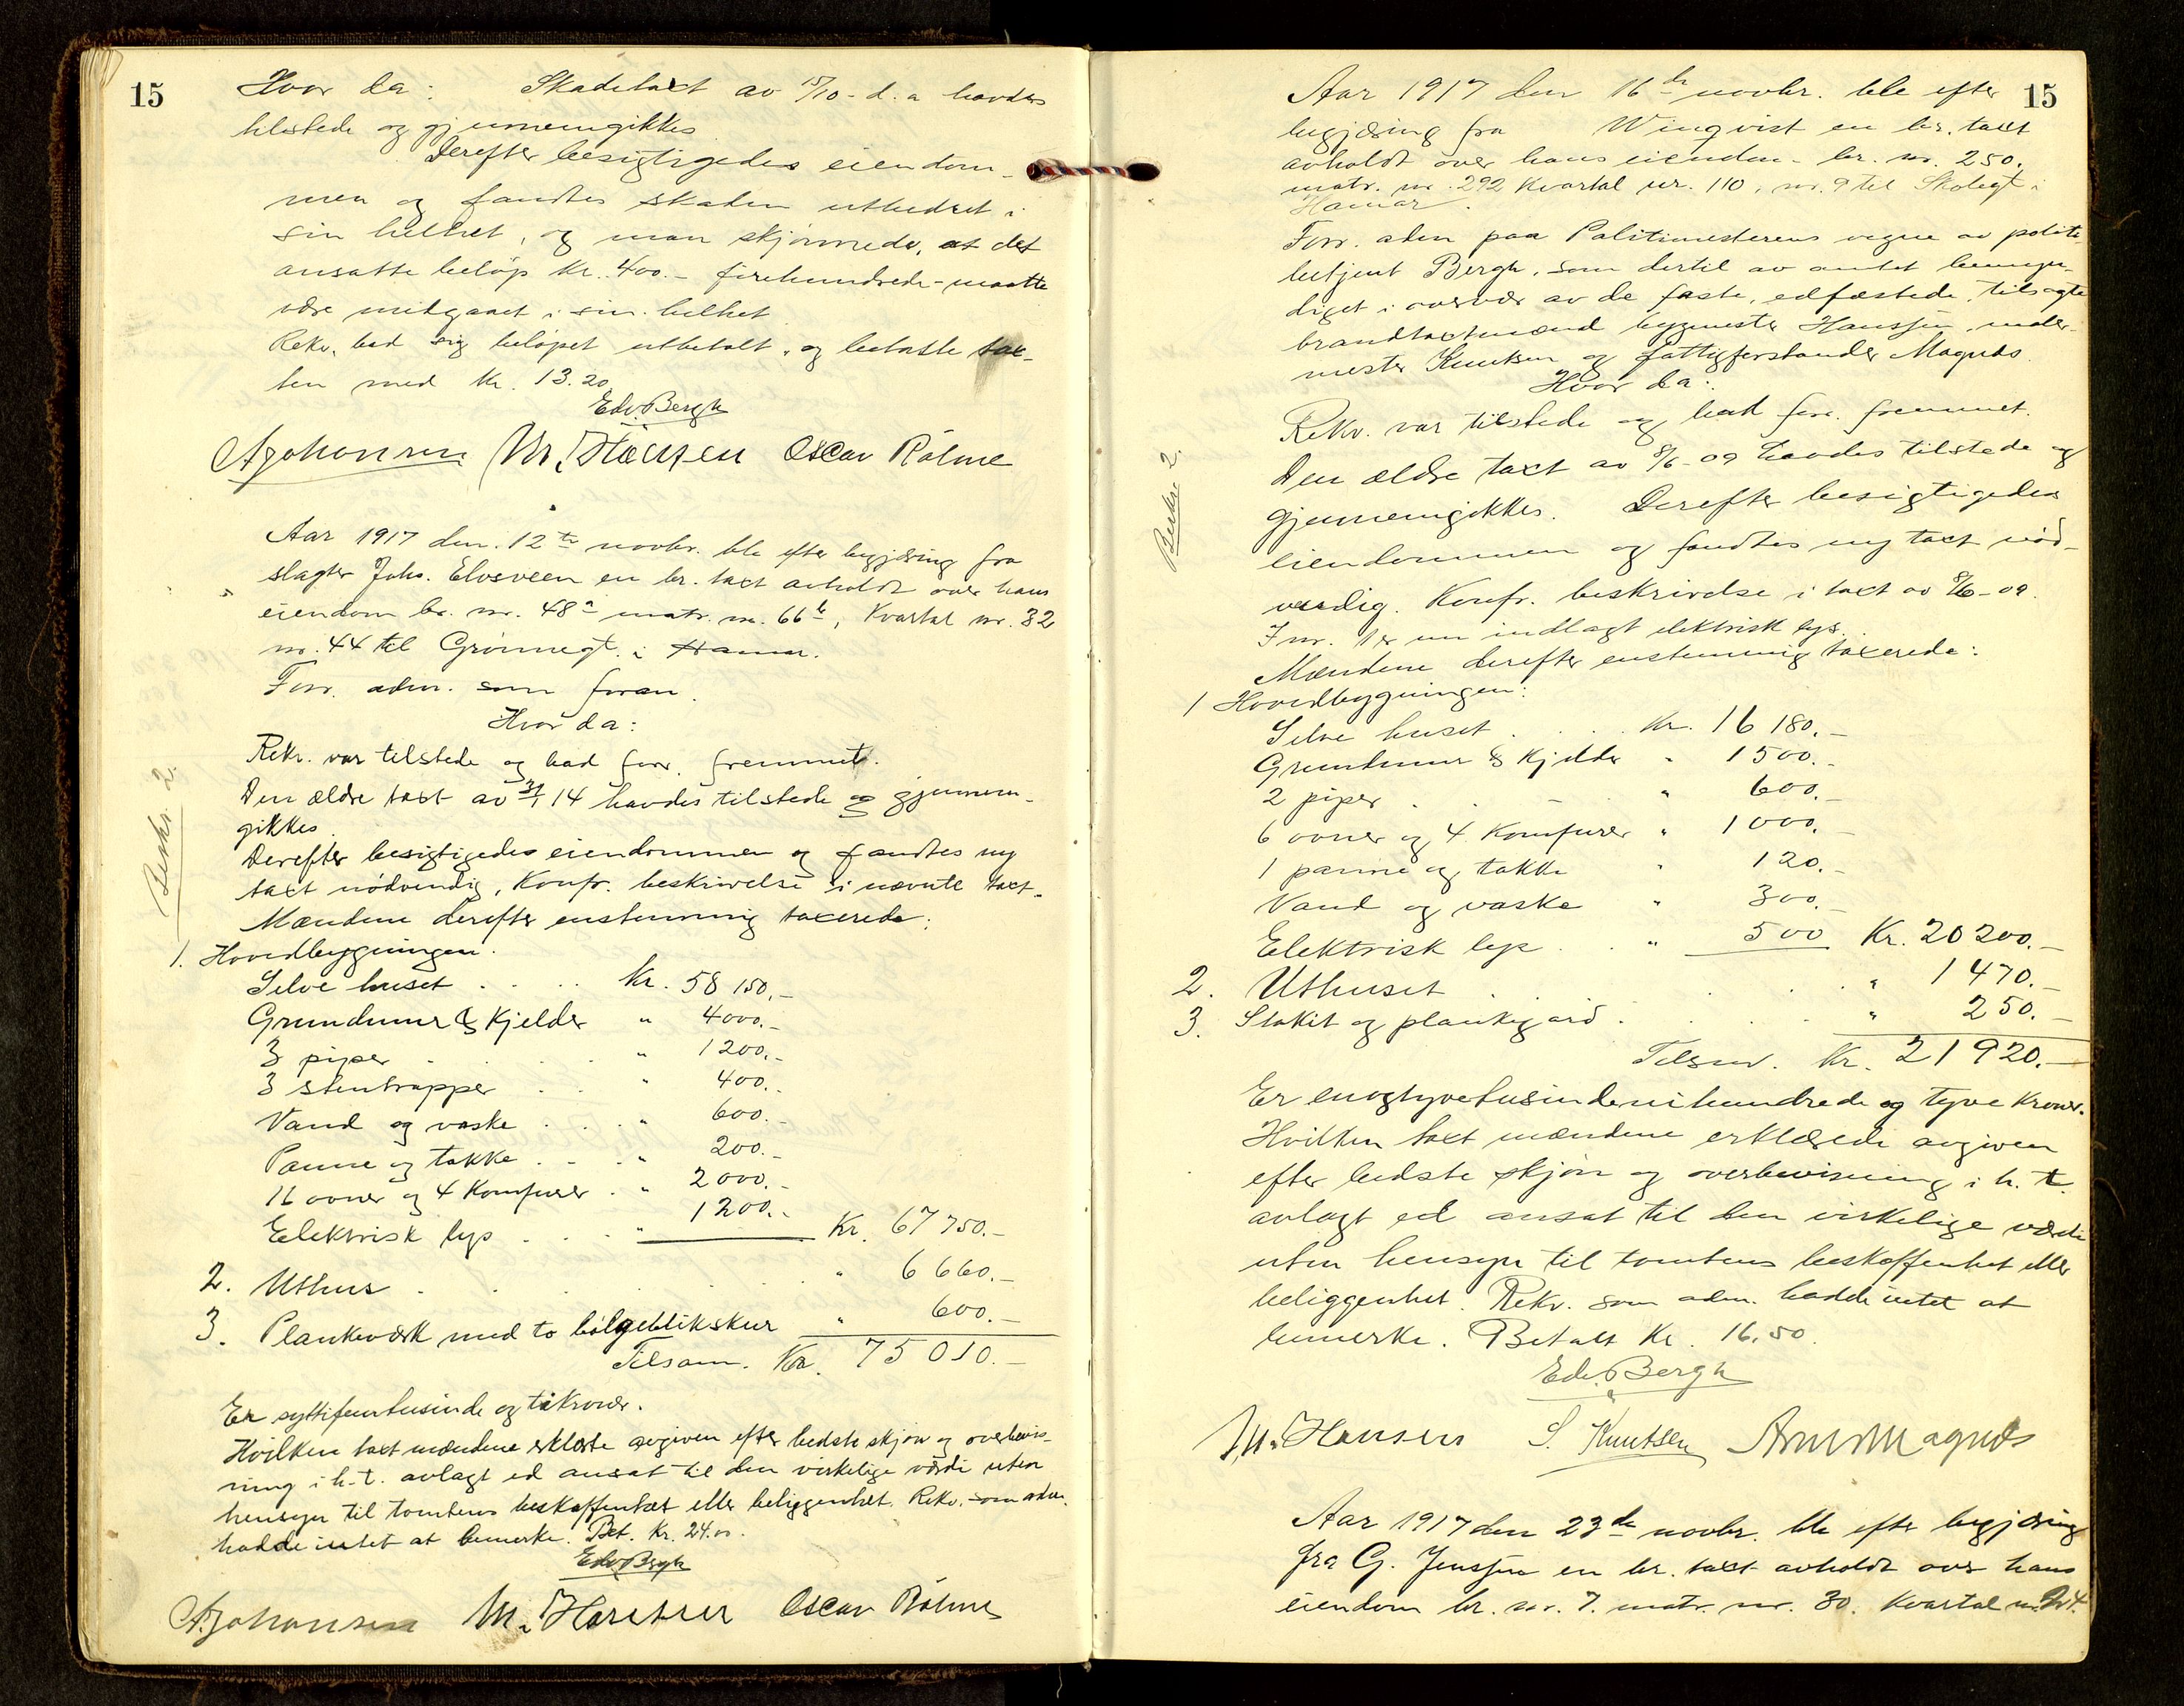 15
Hvor da: Skadetaxt av 15/10 - d. a havdes
tilstede og gjennemgikkes
Derefter besigtigedes eiendom-
men og fandtes skaden utbedret i
sin helhet, og man skjønnede, at det
ansatte beløp kr. 400.- firehundrede - maatte
være medgaaet i sin helhet
Rekv. bad sig beløpet utbetalt, og betalte tax-
ten med Kr. 13.20.
Edv. Bergh
A Johansen M. Hansen Oscar Rølme
Aar 1917 den 12te novbr. ble efter begjæring fra
slagter Johs. Elvsveen en br. taxt avholdt over hans
eiendom br. nr. 48a matr. nr. 66b, Kvartal nr. 32
nr. 44 til Grønnegt. i Hamar.
Forr. adm. som foran.
Hvor da:
Beskr. 2.
Rekv. var tilstede og bad forr. fremmet.
Den ældre taxt av 31/1 14 havdes tilstede og gjennem-
gikkes.
Derefter besigtigedes eiendommen og fandtes ny
taxt nødvendig, Konfr. beskrivelse i nævnte taxt.
Mændene derefter enstemmig taxerede:
1. Hovedbygningen.
Selve huset . . . . Kr. 58 150.-
Grundmur & Kjelder " 4000.-
3 piper . . . " 1200.-
3 stentrapper . . " 400.-
Vand og vaske . . . " 600.-
Panne og takke . . . " 200.-
16 ovner og 4 Komfurer . " 2000.-
Elektrisk lys . . . " 1200.- Kr. 67 750.-
2. Uthus . . . . . " 6 660.-
3. Plankeværk med to bølgeblikskur " 600.-
Tilsam. Kr. 75 010.-
Er syttifemtusinde og ti kroner.
Hvilken taxt mændene erklærte avgiven efter bedste skjøn og overbevis-
ning i h. t. avlagt ed ansat til den virkelige værdi uten
hensyn til tomtens beskaffenhet eller beliggenhet. Rekv. som adm.
hadde intet at bemerke. Bet. Kr. 24.00.
Edv Bergh
A Johansen M. Hansen Oscar Rølme
15
Aar 1917 den 16de novbr. ble efter
begjæring fra Winqvist en br. taxt
avholdt over hans eiendom br. nr. 250.
matr. nr. 292 Kvartal nr. 110, nr. 9 til Skolegt i
Hamar.
Forr. adm paa Politimesterens vegne av politi
betjent Bergh, som dertil av amtet bemyn-
diget i overvær av de faste, edfæstede, tilsagte
brandtaxtmænd bygmester Hanssen, maler-
mester Knutsen og fattigforstander Magnæs.
Hvor da:
Beskr. 2.
Rekv. var tilstede og bad forr. fremmet.
Den ældre taxt av 8/6-09 havdes tilstede og
gjennemgikkes. Derefter besigtigedes
eiendommen og fandtes ny taxt nød-
vendig. Konfr. beskrivelse i taxt av 8/6-09.
I nr. 1 er nu indlagt elektrisk lys.
Mændene derefter enstemmig taxerede:
1 Hovedbygningen:
Selve huset . . . Kr. 16 180.-
Grundmur & Kjelder " 1500.-
2 piper . . " 600.-
6 ovner og 4 Komfurer " 1000.-
1 panne og takke " 120.-
Vand og vaske " 300.-
Elektrisk lys . . " 500 Kr. 20 200.-
2. Uthuset . . . . " 1 470.-
3. Stakit og plankegjærd . . . " 250.-
Tilsm. Kr. 21 920.-
Er enogtyvetusindenihundrede og tyve Kroner.
Hvilken taxt mændene erklærede avgiven
efter bedste skjøn og overbevisning i h. t.
avlagt ed ansat til den virkelige værdi
uten hensyn til tomtens beskaffenhet eller
beliggenhet. Rekv. som adm. hadde intet at
bemerke. Betalt Kr. 16.50.
Edv. Bergh
M. Hansen S. Knutsen Arne Magnæs
Aar 1917 den 23de novbr. ble efter begjæring
fra G. Jenssen en br. taxt avholdt over hans
eiendom br. nr. 7. matr. nr. 30. Kvartal nr. 24.